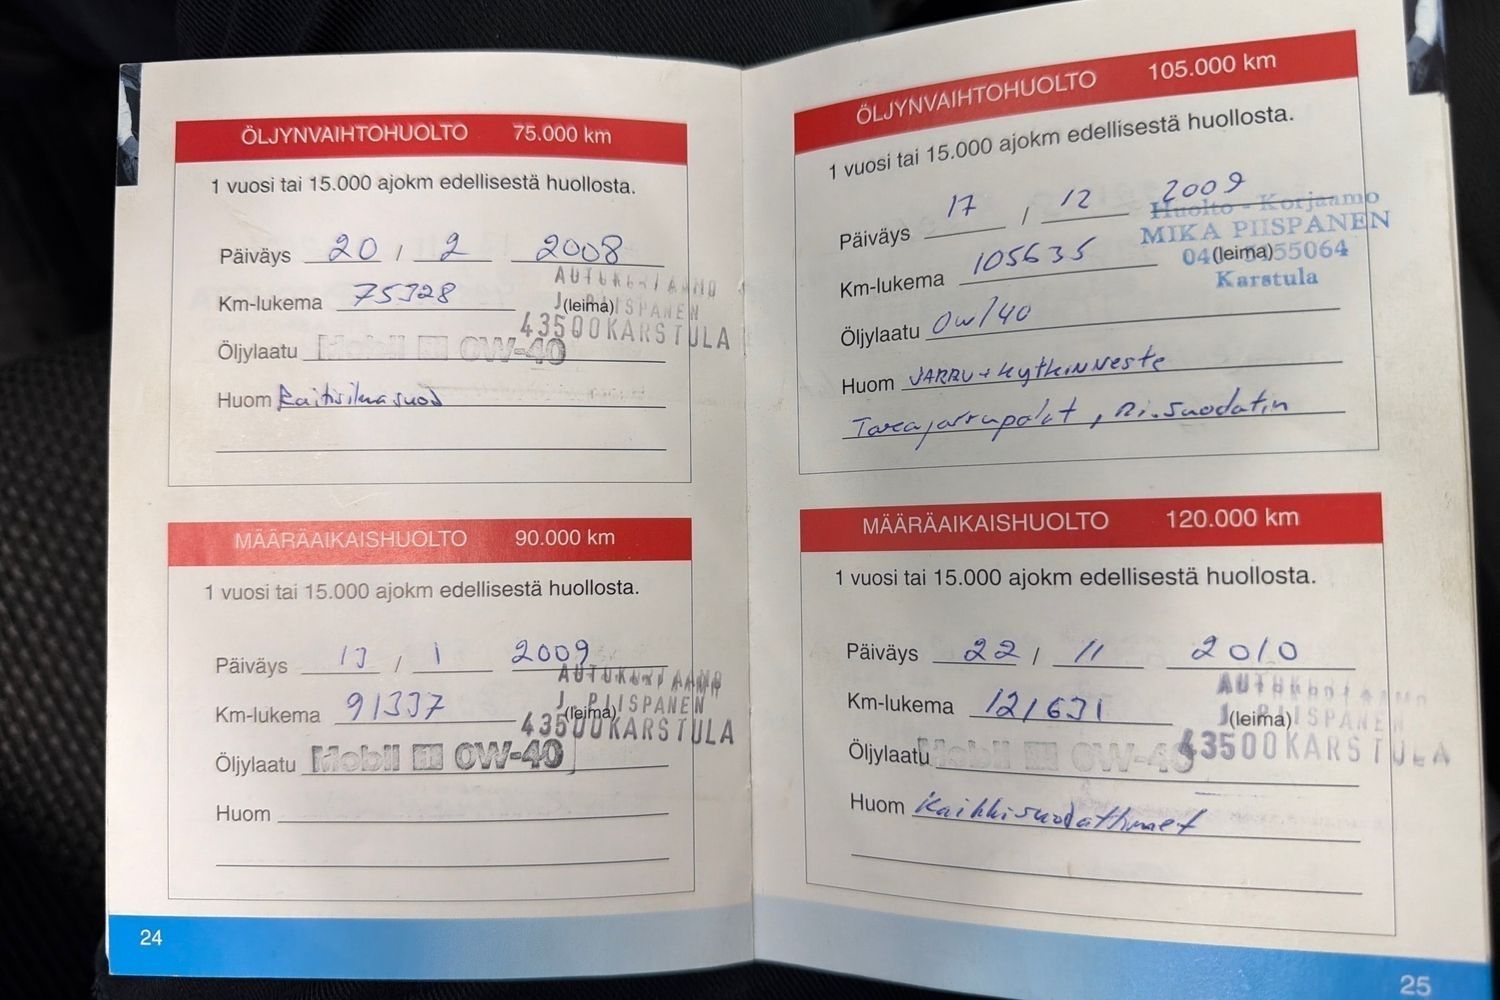 ÖLJYNVAIHTOHUOLTO 75.000 km
1 vuosi tai 15.000 ajokm edellisestä huollosta.
Päiväys 20 / 2 2008
Km-lukema 75328
AUTOKORJAAMO
J. PIISPANEN
(leima)
43500 KARSTULA
Öljylaatu Mobil 1 0W-40
Huom Raitisilmasuod
MÄÄRÄAIKAISHUOLTO 90.000 km
1 vuosi tai 15.000 ajokm edellisestä huollosta.
Päiväys 13 / 1 2009
Km-lukema 91337
AUTOKORJAAMO
J. PIISPANEN
(leima)
43500 KARSTULA
Öljylaatu Mobil 1 0W-40
Huom
24
ÖLJYNVAIHTOHUOLTO 105.000 km
1 vuosi tai 15.000 ajokm edellisestä huollosta.
Päiväys 17 / 12 2009
Huolto - Korjaamo
MIKA PIISPANEN
(leima)
Karstula
Km-lukema 105635
Öljylaatu 0w/40
Huom JARRU + kytkinneste
Takajarrupalat, Ri.suodatin
MÄÄRÄAIKAISHUOLTO 120.000 km
1 vuosi tai 15.000 ajokm edellisestä huollosta.
Päiväys 22 / 11 2010
Km-lukema 121631
AUTOKORJAAMO
J. PIISPANEN
(leima)
43500 KARSTULA
Öljylaatu Mobil 1 0W-40
Huom Kaikki suodattimet
25